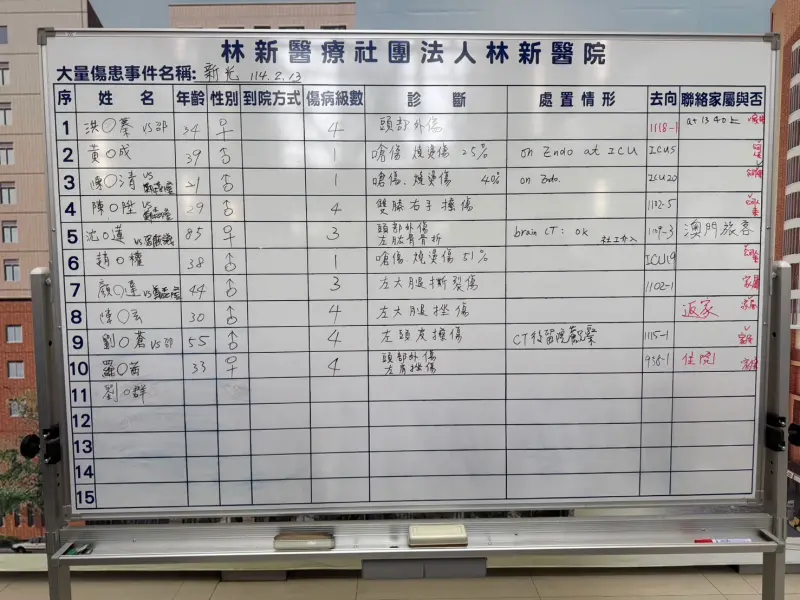 林新醫療社團法人林新醫院
大量傷患事件名稱: 新光 114.2.13
序 姓名 年齡 性別 到院方式 傷病級數 診斷 處置情形 去向 聯絡家屬與否
1 洪〇蓁 vs邱 34 ♀ 4 頭部外傷 1118-1 at 1340
2 黃〇成 39 ♂ 1 嗆傷 燒燙傷 25% on Endo at ICU ICU5
3 陳〇清 vs 21 ♂ 1 嗆傷、燒燙傷 40% on Endo. ICU20
4 陳〇陞 vs 29 ♂ 4 雙膝右手擦傷 1102-5
5 沈〇蓮 vs 85 ♀ 3 頭部外傷 左肱骨骨折 brain CT: ok 社工介入 1109-3 澳門旅客
6 趙〇 38 ♂ 1 嗆傷、燒燙傷 51% ICU19
7 顏〇達 vs 44 ♂ 3 左大腿撕裂傷 1102-1 家屬
8 陳〇玄 30 ♂ 4 左大腿挫傷 返家
9 劉〇蒼 vs邱 55 ♂ 4 左頭皮擦傷 CT後留院觀察 1115-1
10 羅〇茵 33 ♀ 4 頭部外傷 左肩挫傷 938-1 住院
11 劉〇群
12
13
14
15